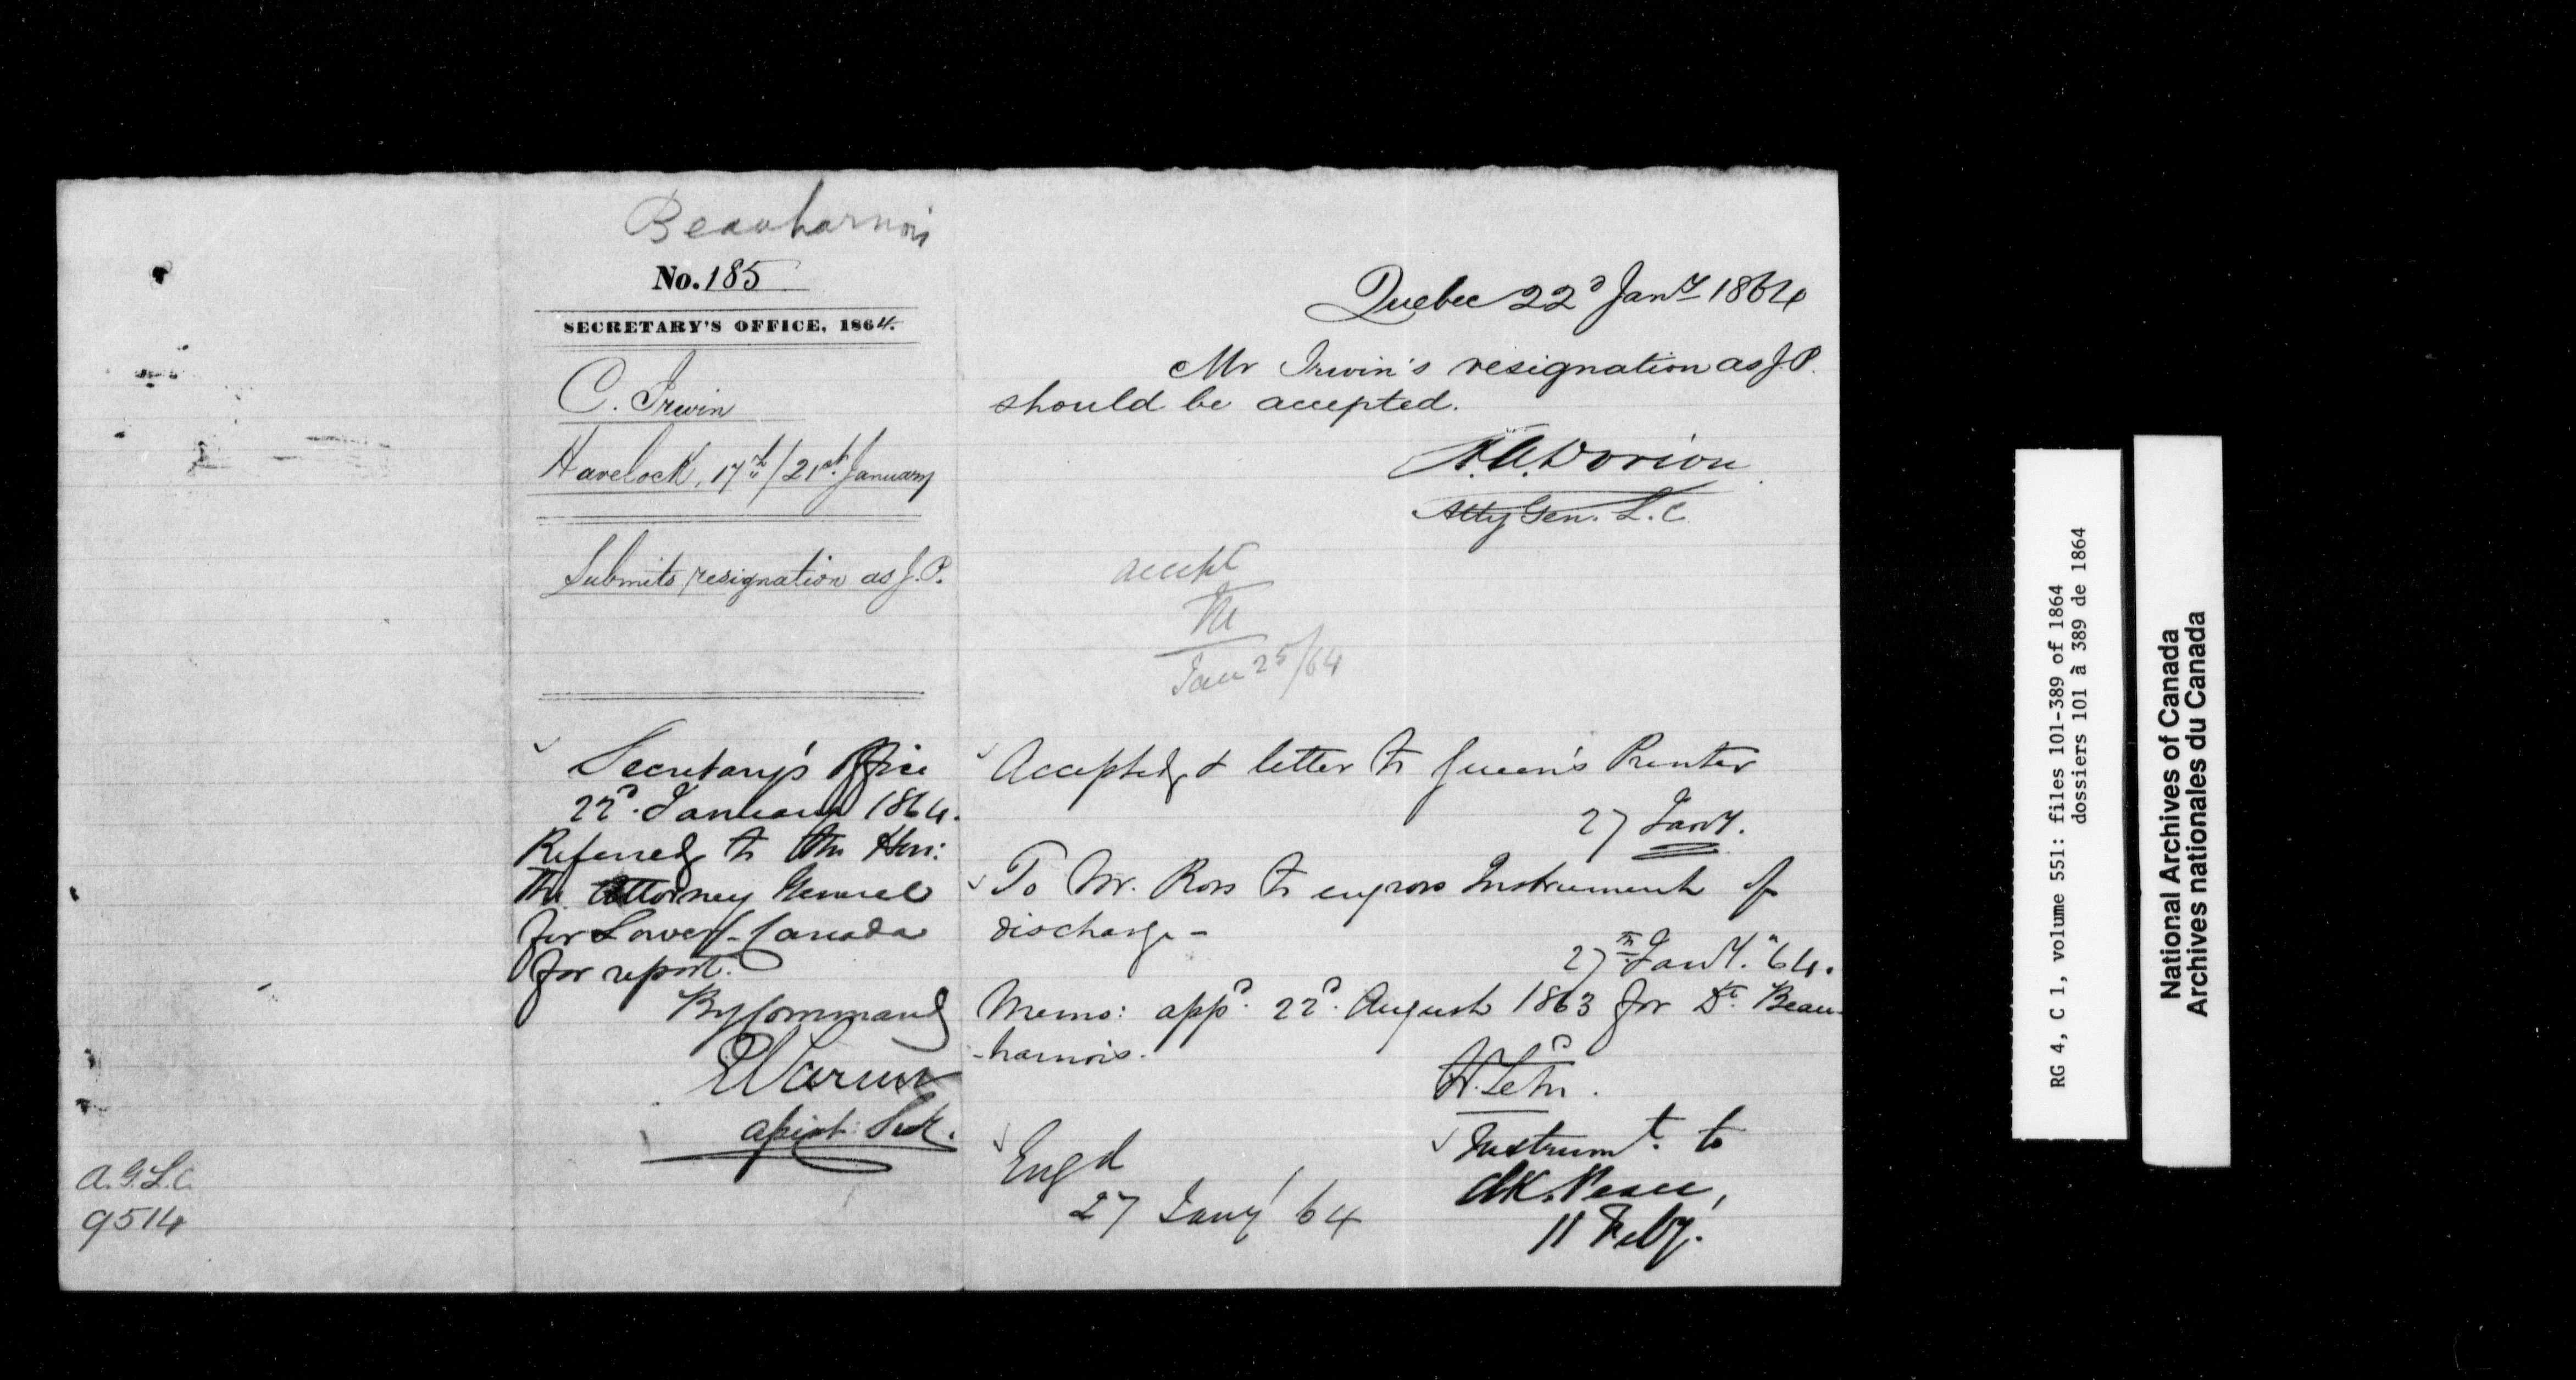 Beauharnois
No. 185
SECRETARY'S OFFICE, 1864.
C. Irwin
Havelock, 17th/21st January
Submits resignation as J.P.
Secretary's Office
22d. January 1864.
Referred to the Hon:
the Attorney General
for Lower-Canada
for report.
By Command
Assist: Sec.
A.G.L.C.
9514
Quebec 22d Jany 1864
Mr Irwin's resignation as J.P.
should be accepted.
A.A. Dorion
Atty Gen. L.C.
accept
Jan 25/64
Accepted, & letter to Queen's Printer
27 Jany.
To Mr. Ross to engross Instrument of
discharge -
27th Jany. "64.
Memo: appd. 22d. August 1863 for Dt. Beau-
-harnois.
Engd
27 Jany '64
Instrumt. to
Clk. Peace,
11 Feby.
RG 4, C 1, volume 551: files 101-389 of 1864
dossiers 101 à 389 de 1864
National Archives of Canada
Archives nationales du Canada